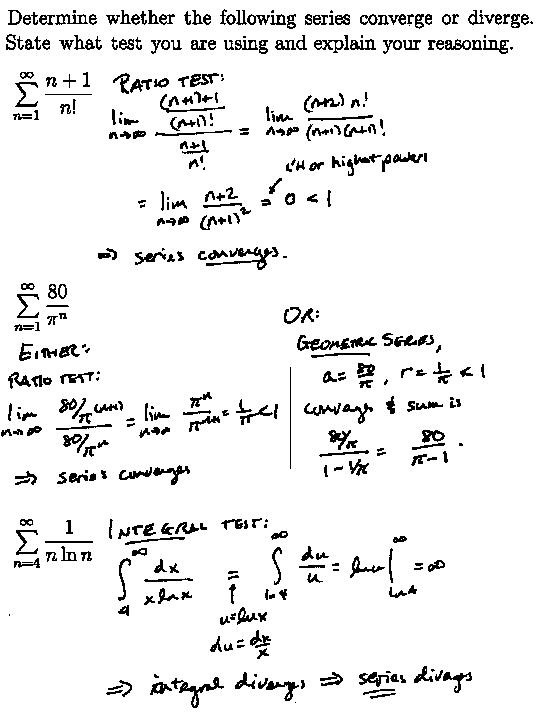 Determine whether the following series converge or diverge.
State what test you are using and explain your reasoning.
∞ Σ n=1 (n + 1)/n! RATIO TEST:
lim n→∞ ((n+1)+1)/(n+1)! / (n+1)/n! = lim n→∞ (n+2) n!/(n+1)(n+1)!
L'H or highest powers
= lim n→∞ (n+2)/(n+1)² = 0 < 1
⇒ series converges.
∞ Σ n=1 80/πⁿ
EITHER:
RATIO TEST:
lim n→∞ 80/π^(n+1) / 80/πⁿ = lim n→∞ πⁿ/πⁿ⁺¹ = 1/π < 1
⇒ series converges
OR:
GEOMETRIC SERIES,
a = 80/π, r = 1/π < 1
converges & sum is
80/π / 1 - 1/π = 80/π-1.
∞ Σ n=4 1/(n ln n) INTEGRAL TEST:
∫ 4 ∞ dx/(x ln x) = ∫ ln 4 ∞ du/u = ln u | ln 4 ∞ = ∞
↑
u = ln x
du = dx/x
⇒ integral diverges ⇒ series diverges